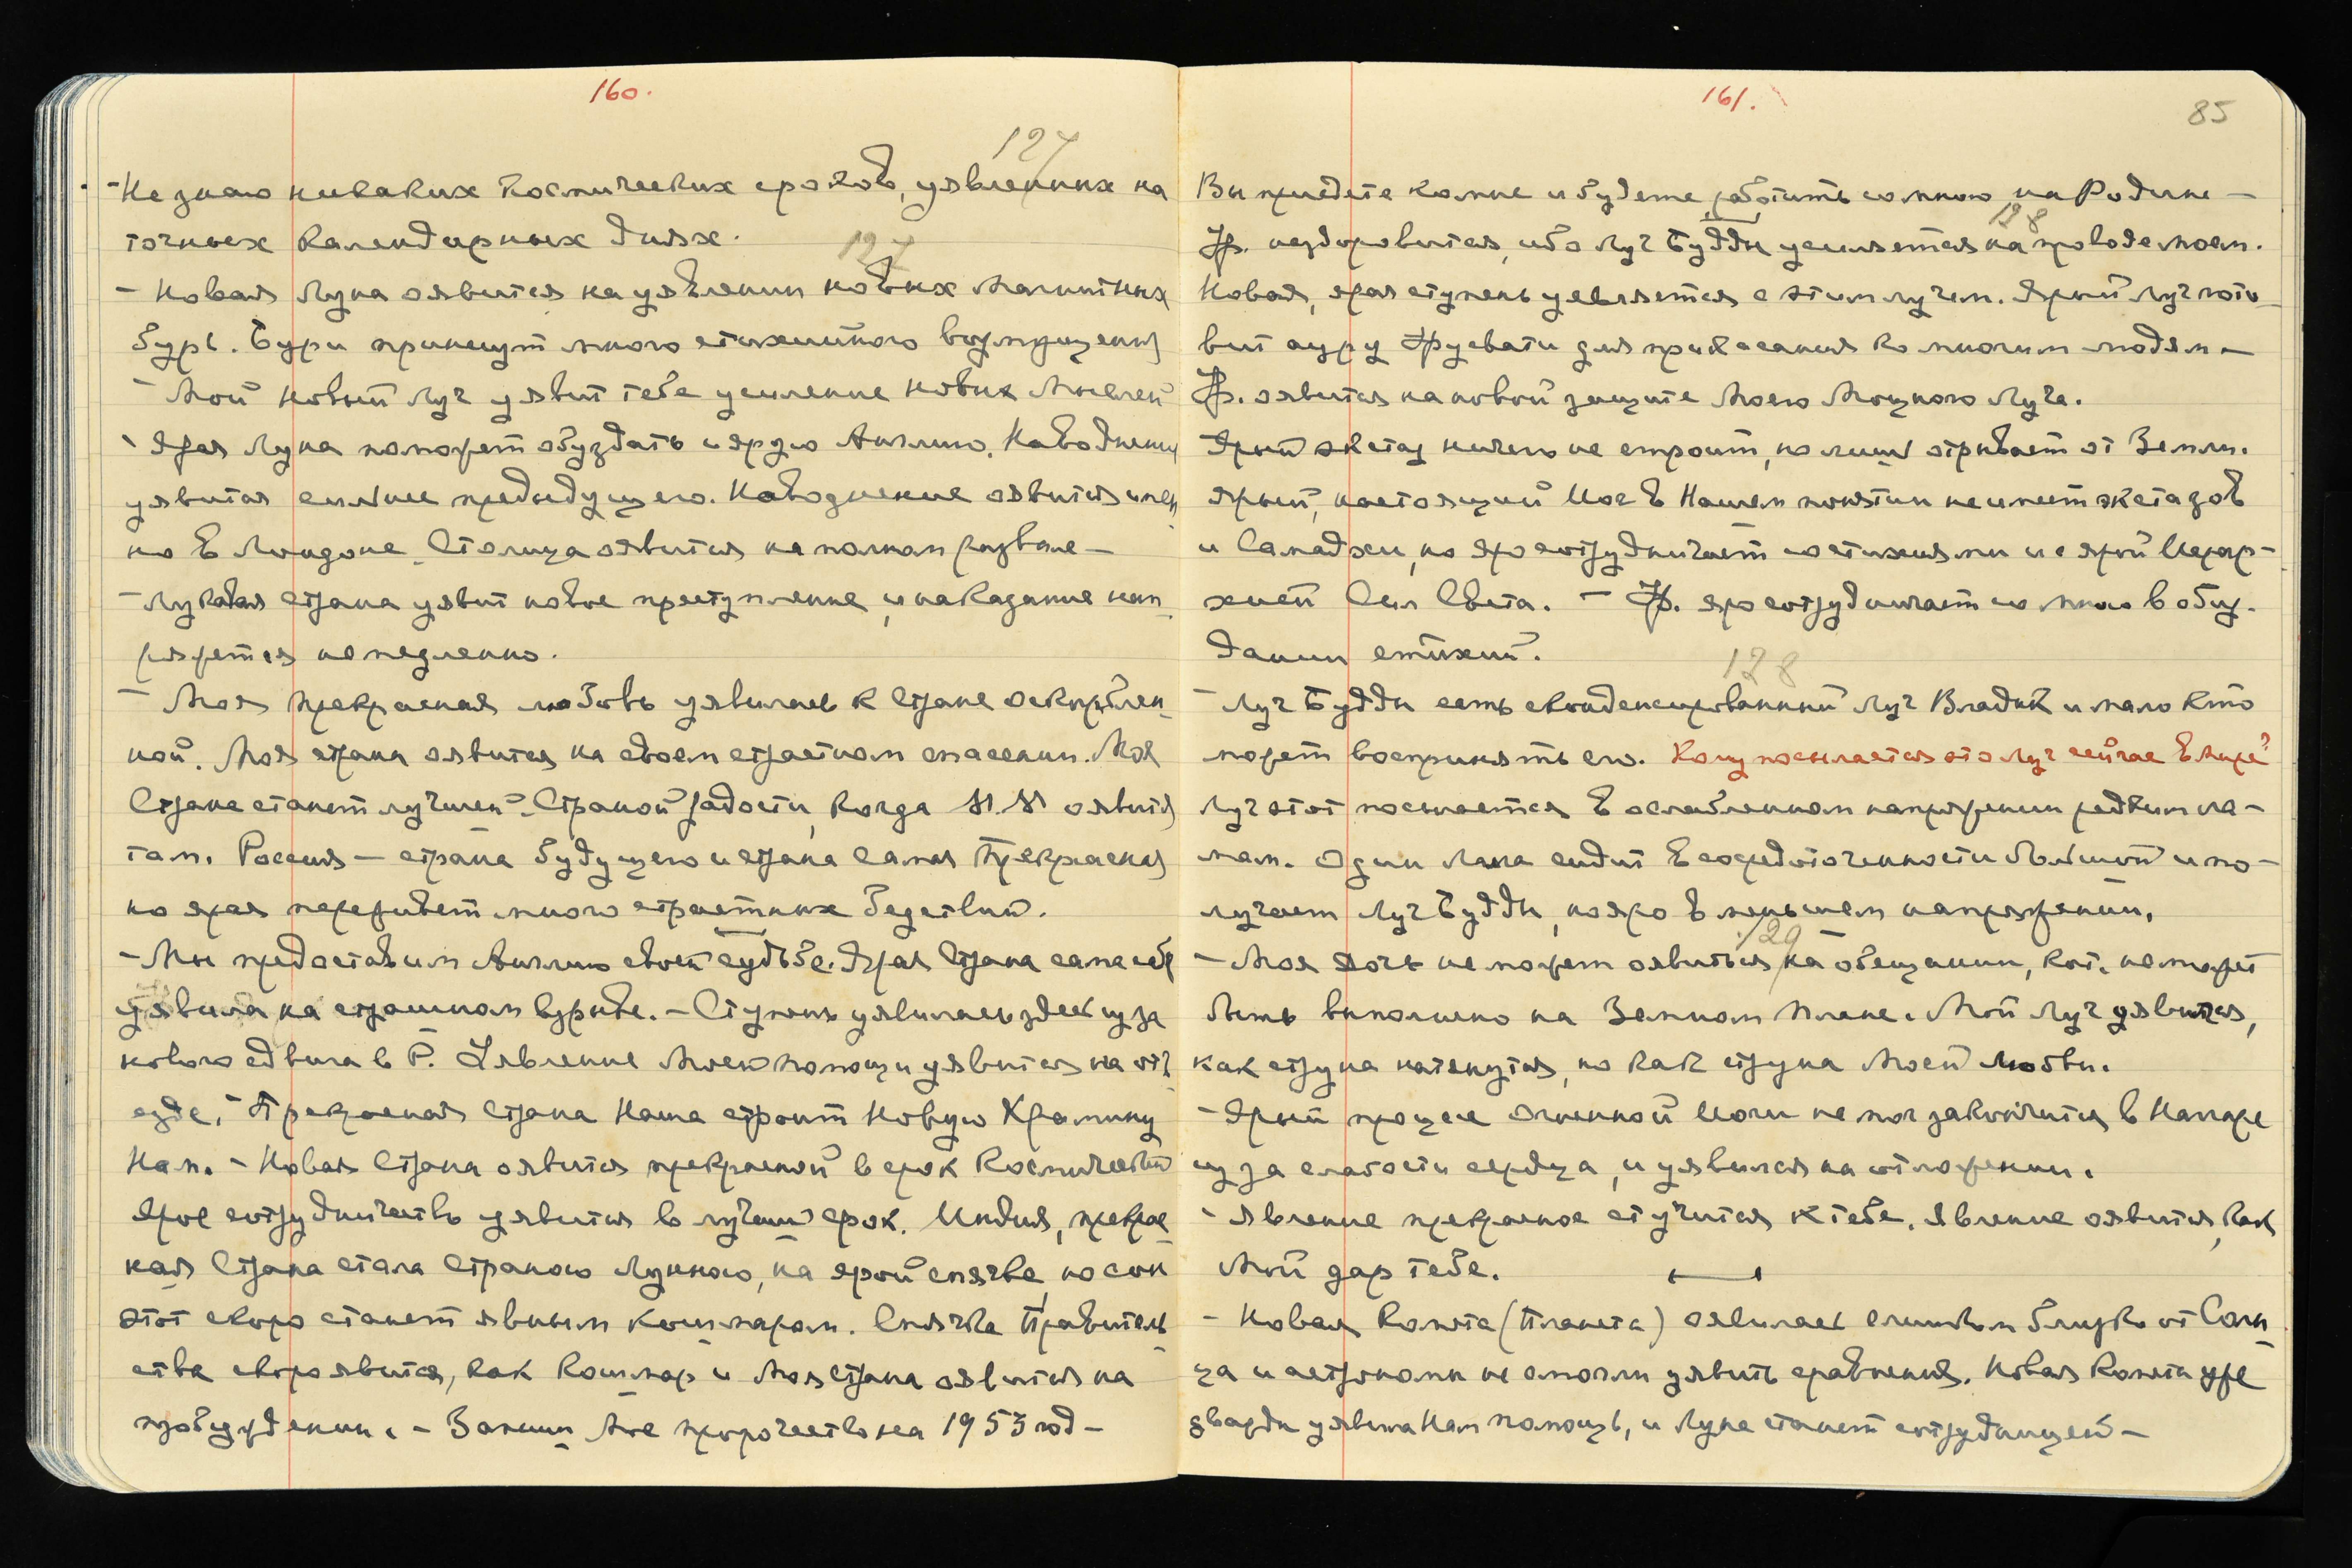 160.
127
- Не знаю никаких Космических сроков, уявленных на
точных Календарных днях.
127
- Новая Луна оявится на уявлении новых Магнитных
бурь. Бури принесут много стихийного возмущения
- Мой Новый Луч уявит тебе усиление новых Мыслей
- Ярая Луна поможет обуздать и ярую Англию. Наводнение
уявится сильнее предыдущего. Наводнение оявится имен
но в Лондоне. Столица оявится на полном развале –
- Лукавая страна уявит новое преступление, и наказание нап
ряжется немедленно.
- Моя прекрасная любовь уявилась к Стране оскорблен
ной. Моя страна оявится на своем страстном спасении. Моя
Страна станет лучшей Страной радости, когда оявится
там. Россия – страна будущего и страна самая Прекрасная
но ярая переживет много страстных бедствий.
- Мы предоставим Англию своей судьбе. Ярая Страна сама себя
уявила на страшном взрыве. – Ступень уявилась здесь из за
нового сдвига в Р. Уявление Моей помощи уявится на отъ
езде. – Прекрасная Страна Наша строит Новую Храмину
Нам. – Новая Страна оявится прекрасной в срок Космический
Ярое сотрудничество уявится в лучший срок. Индия, прекрас
ная Страна стала Страною Лунною, на ярой спячке, но сон
этот скоро станет явным кошмаром. Спячка Правитель
ства скоро явится, как Кошмар и Моя Страна оявится на
пробуждении. – Запиши Мое пророчество на 1953 год –
161.
85
Вы приедете ко мне и будете работать со мною на Родине –
128
Ур. нездоровится, ибо Луч Будды усиляется на проводе моем.
Новая, ярая ступень уявляется с этим лучем. Ярый Луч гото
вит ауру Урусвати для прикасания ко многим людям –
Ур. оявится на новой защите Моего Мощного Луча.
Ярый экстаз ничего не строит, но лишь отрывает от Земли.
Ярый, настоящий Йог в Нашем понятии не имеет экстазов
и Самадхи, но яро сотрудничает со стихиями и с ярой Иерар-
хией Сил Света. – Ур. яро сотрудничает со мною в обуз-
дании стихий.
128
- Луч Будды есть сконденсированный Луч Владык и мало кто
может воспринять его. Кому посылается этот луч сейчас в мире?
Луч этот посылается в ослабленном напряжении редким ла-
мам. Один Лама сидит в сосредоточенности большой и по-
лучает Луч Будды, но яро в меньшем напряжении.
129
- Моя дочь не может оявиться на обещании, кот. не может
быть выполнено на Земном плане. Мой Луч уявится,
как струна натянутая, но как струна Моей любви.
- Ярый процесс Огненной Йоги не мог закончиться в Нагаре
из за слабости сердца, и уявился на отложении.
- Явление прекрасное стучится к тебе. Явление оявится, как
Мой дар тебе.
- Новая Комета (Планета) оявилась слишком близко от Солн
ца и астрономы не смогли уявить сравнения. Новая Комета уже
дважды уявила Нам помощь, и Луна станет сотрудницей –